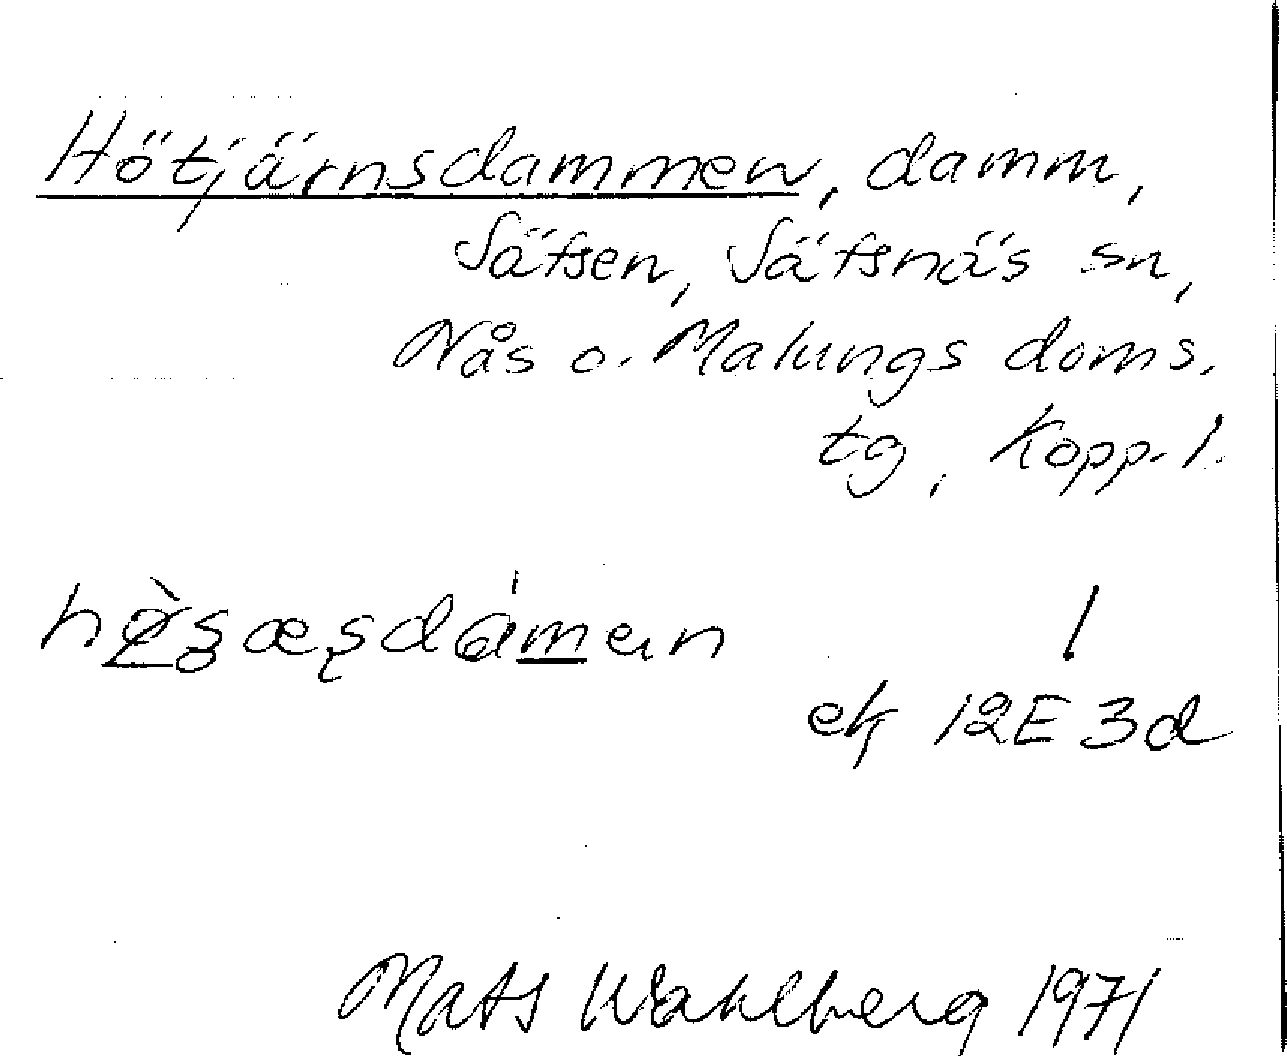 Hötjärnsdammen, damm,
Sätsen, Sätsnäs sn,
Nås o. Malungs doms.
tg, Kopp. l.
!
ek 12E3d
Mats Wahlberg 1971